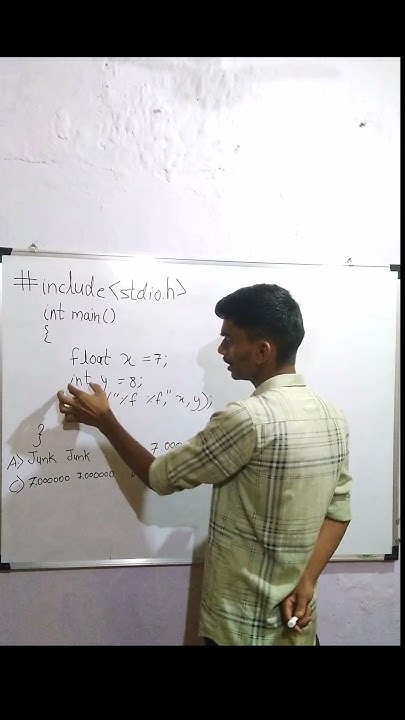 #include<stdio.h>
int main()
{
float x =7;
int y =8;
("%f %f," x,y);
}
A) Junk Junk
7.000
C) 7.000000 7.000000